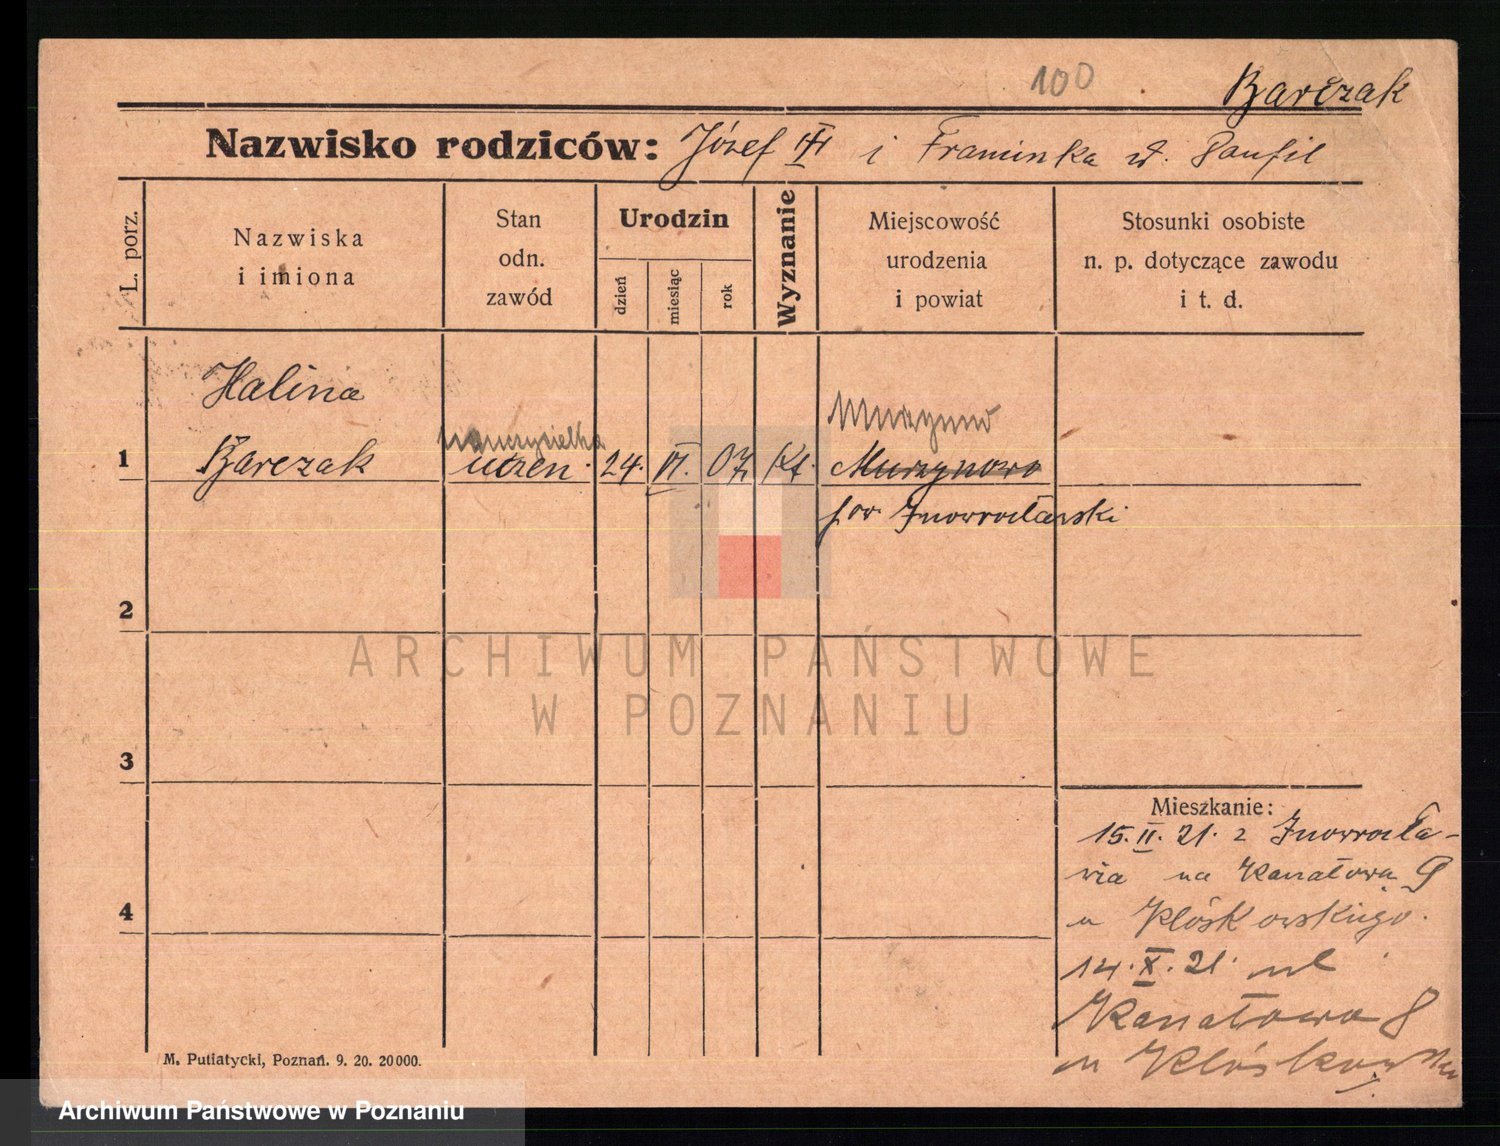 100
Barczak
Nazwisko rodziców: Józef i Franciszka
L. porz.
Nazwiska i imiona
Stan odn. zawód
Urodzin
dzień
miesiąc
rok
Wyznanie
Miejscowość urodzenia i powiat
Stosunki osobiste n. p. dotyczące zawodu i t. d.
Halina
Murzynno
nauczycielka
1 Barczak uczen. 24. VI. 07 Kt. Murzynowo
pow. Inowrocławski
2
3
4
Mieszkanie:
15. II. 21. z Inowrocła-
wia na Kanałowa 9
u Kłóskowskiego.
14. X. 21. ul
Kanałowa 8
u Kłóskowski
M. Putiatycki, Poznań. 9. 20. 20000.
ARCHIWUM PAŃSTWOWE
W POZNANIU
Archiwum Państwowe w Poznaniu